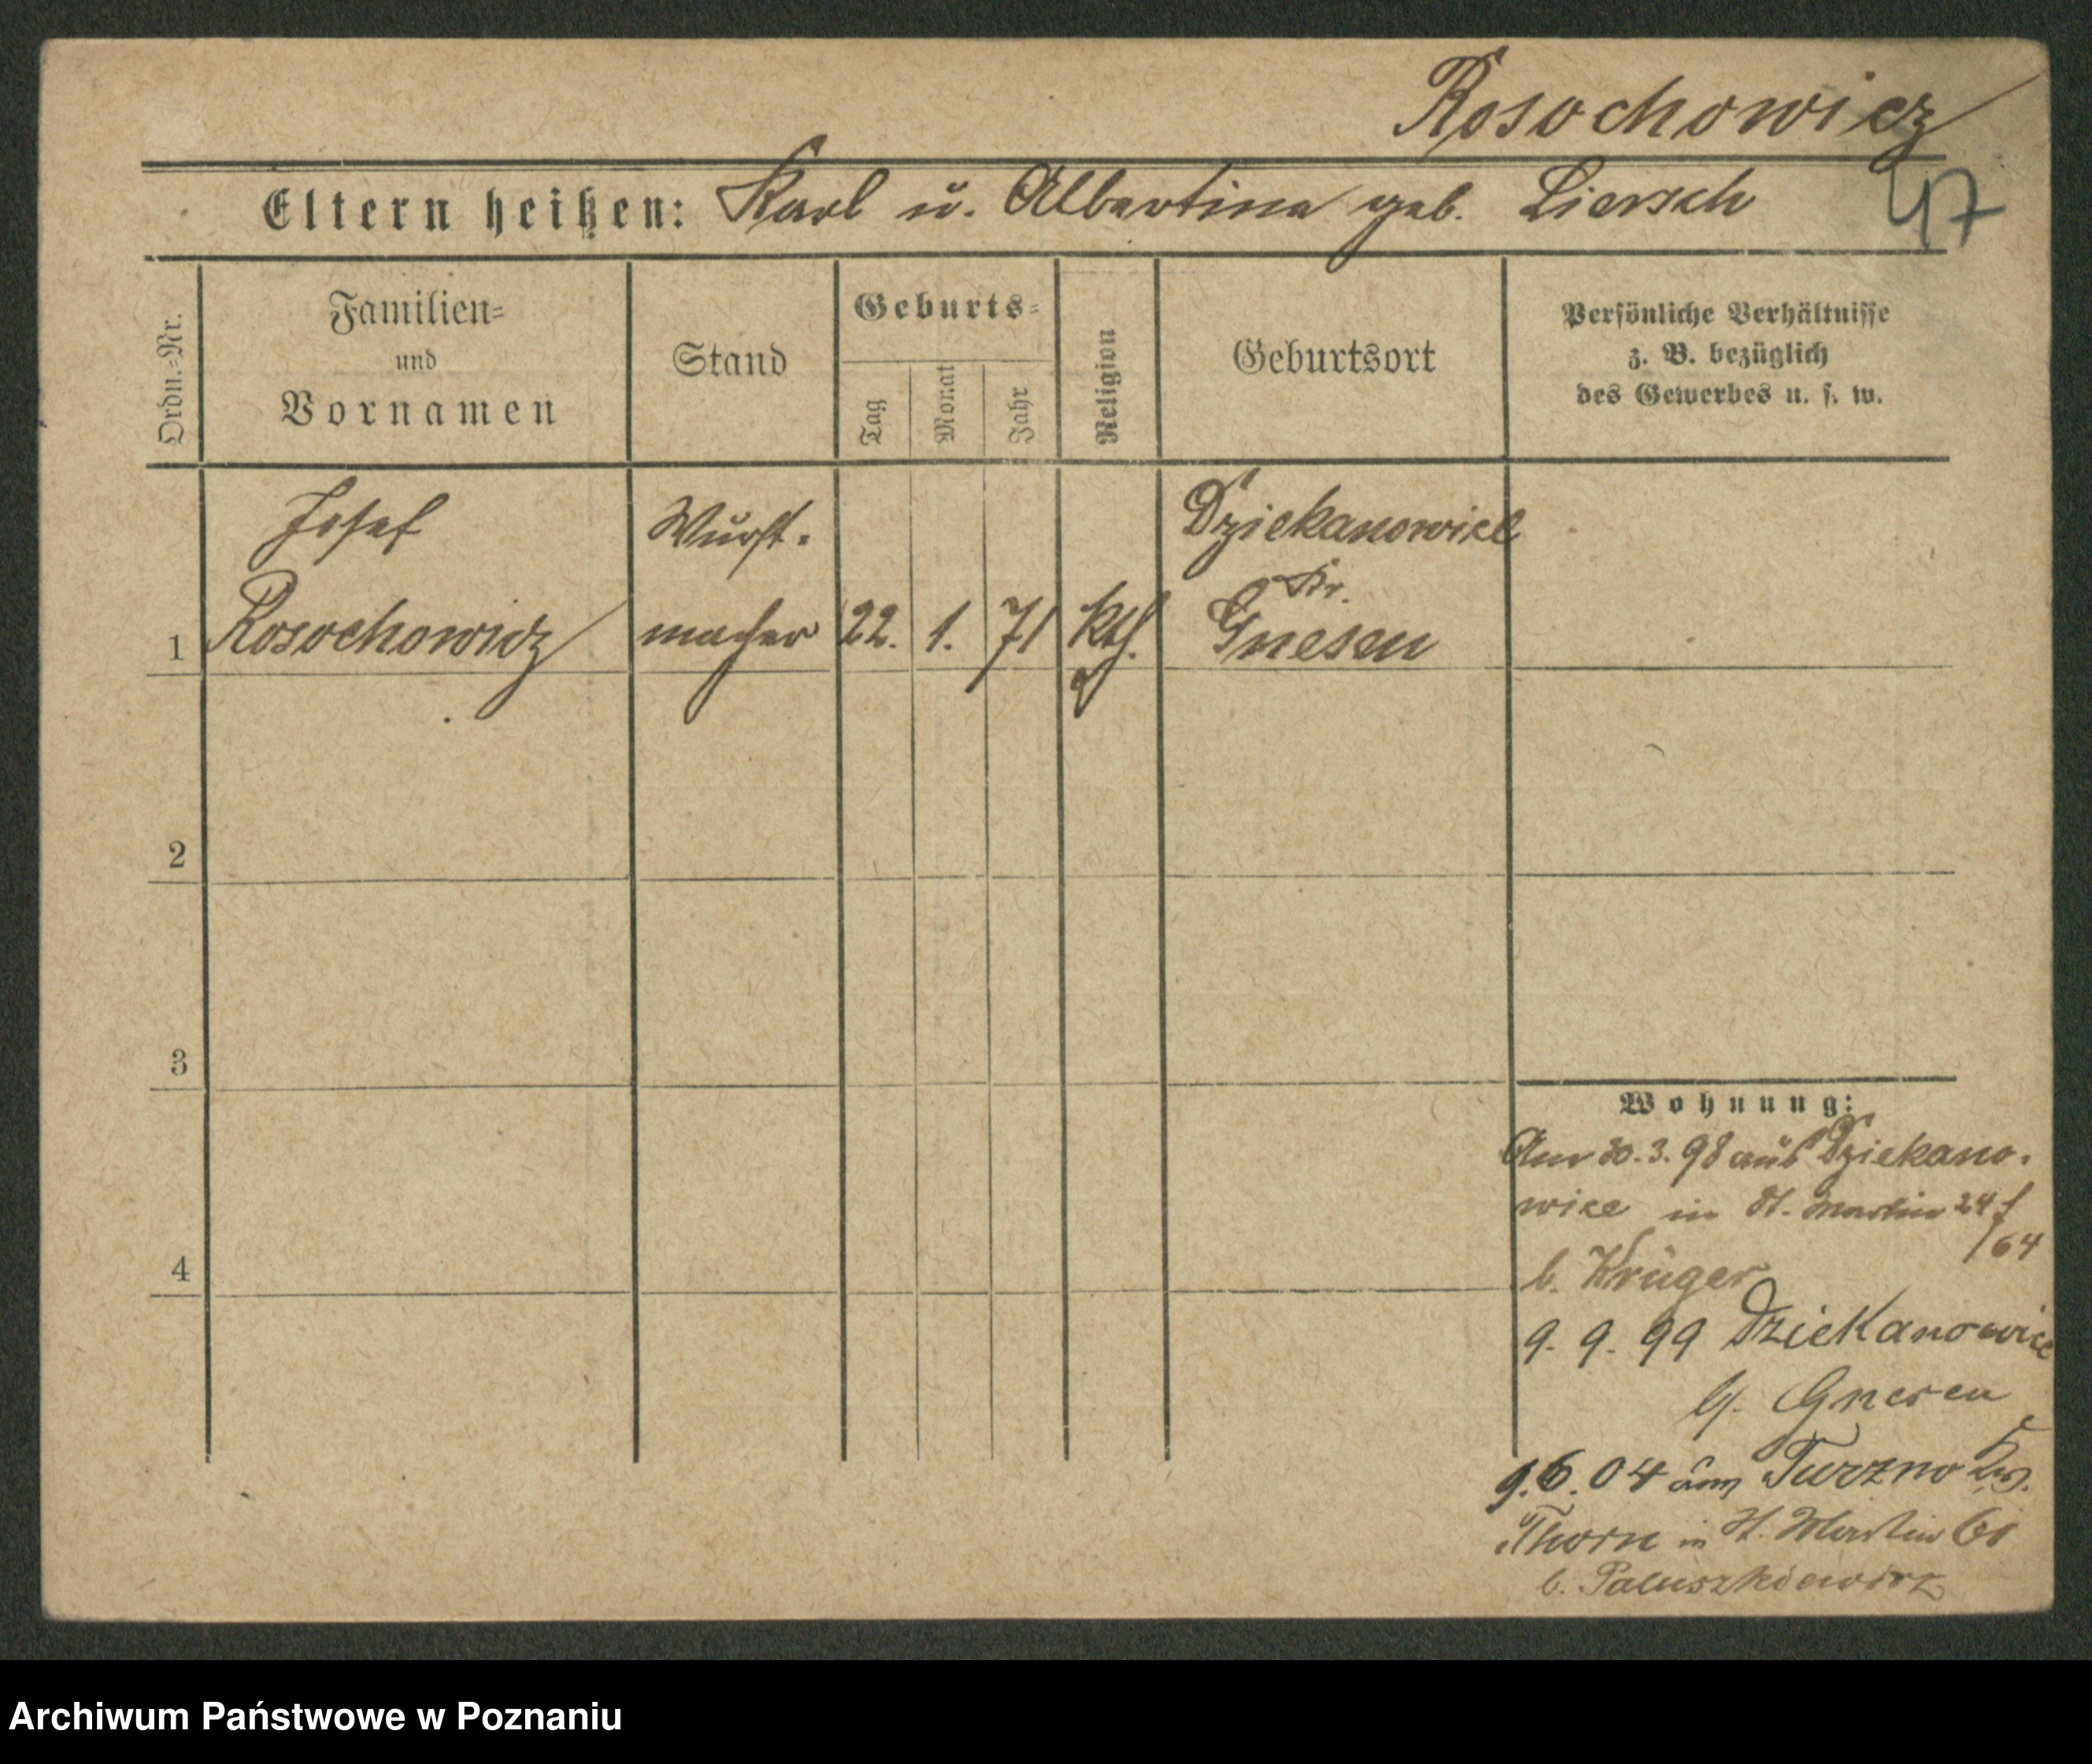 Rosochowicz
Eltern heißen: Karl u. Albertina geb. Liersch
47
Ordn.=Nr.
Familien=
und
Vornamen
Stand
Geburts=
Tag
Monat
Jahr
Religion
Geburtsort
Persönliche Verhältnisse
z. B. bezüglich
des Gewerbes u. s. w.
Josef Wurst- Dziekanowice
Kr.
1 Rosochowicz macher 22. 1. 71 kth. Gnesen
2
3
4
Wohnung:
Am 30.3.98 aus Dziekano-
wice in St. Martin 24
/64
b. Krüger
9. 9. 99 Dziekanowice
b/. Gnesen
9.6.04 aus Turzno Krs.
Thorn in St. Martin 61
b. Paluszkiewicz
Archiwum Państwowe w Poznaniu